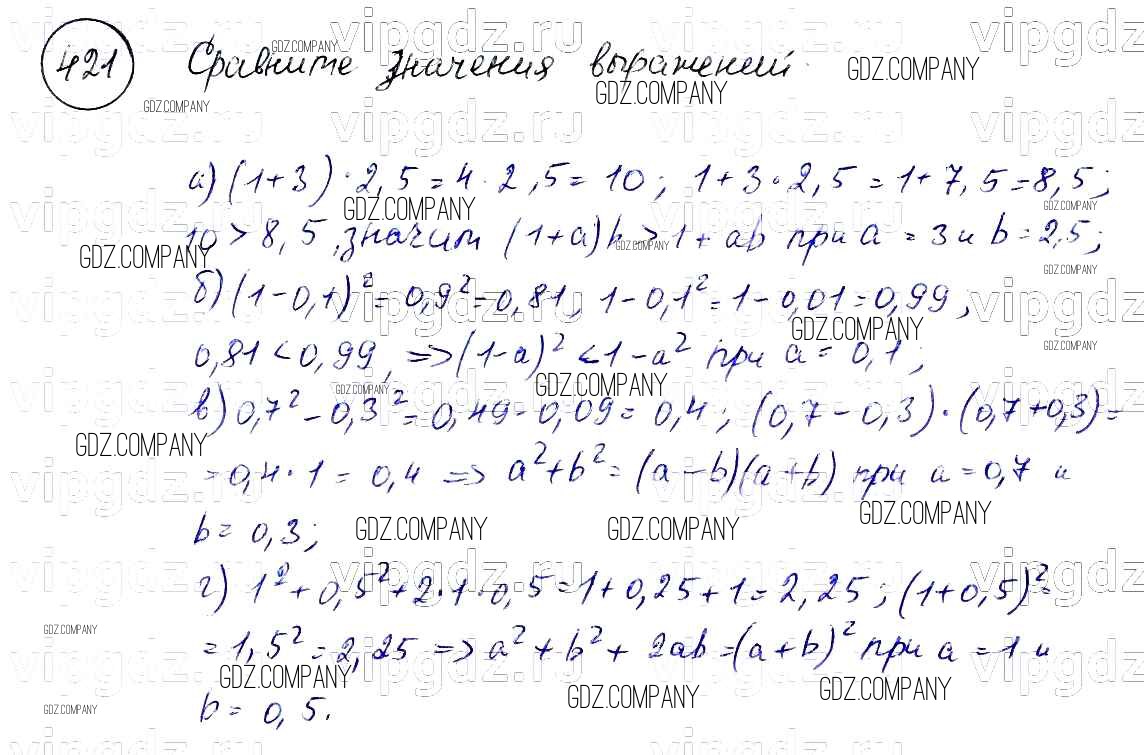 421 Сравните значения выражений
а) (1+3)·2,5=4·2,5=10; 1+3·2,5=1+7,5=8,5;
10>8,5, значит (1+a)b>1+ab при a=3 и b=2,5;
б) (1-0,1)²=0,9²=0,81, 1-0,1²=1-0,01=0,99,
0,81<0,99, =>(1-a)²<1-a² при a=0,1;
в) 0,7²-0,3²=0,49-0,09=0,4; (0,7-0,3)·(0,7+0,3)=
=0,4·1=0,4 => a²+b²=(a-b)(a+b) при a=0,7 и
b=0,3;
г) 1²+0,5²+2·1·0,5=1+0,25+1=2,25; (1+0,5)²=
=1,5²=2,25 => a²+b²+2ab=(a+b)² при a=1 и
b=0,5.
vipgdz.ru
GDZ.COMPANY